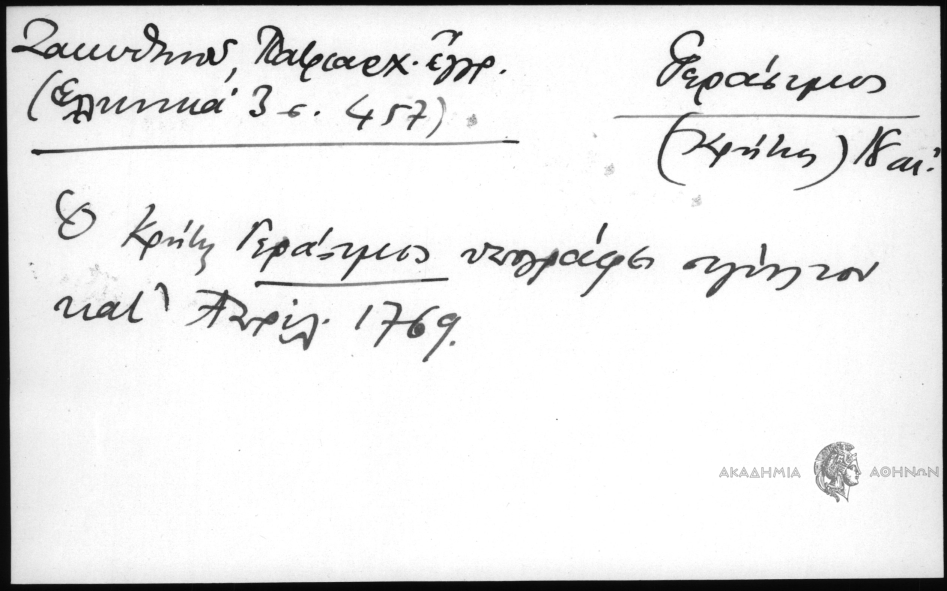 Ζακυθηνοῦ, Πατριαρχ. ἔγγρ.
(Ἑλληνικά 3 σ. 457)
Γεράσιμος
(Κρήτης) 18 αι.
Ὁ Κρήτης Γεράσιμος υπογράφει σιγίλλιον
κατ' Απρίλ. 1769.
ΑΚΑΔΗΜΙΑ ΑΘΗΝΩΝ